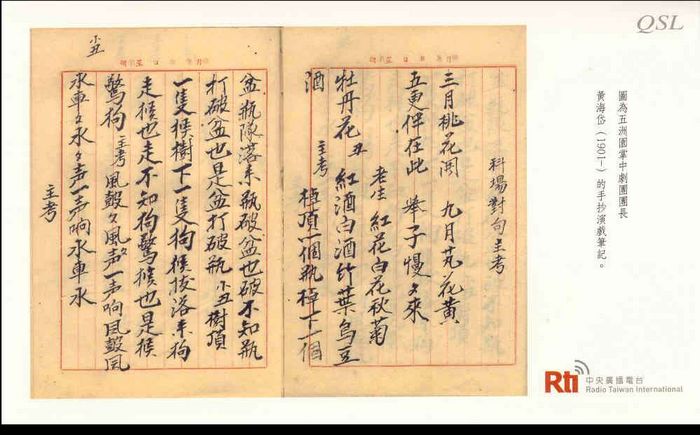 QSL
圖為五洲園掌中劇團團長
黃海岱（1901-）的手抄演戲筆記。
科場對句主考
三月桃花開 九月花黃
五更伴在此 舉子慢々來
老生 紅花白花秋菊
牡丹花 丑 紅酒白酒竹葉烏豆
酒 主考 棹頂一個瓶棹下一個
盆瓶隊落来瓶破盆也破不知瓶
打破盆也是盆打破瓶 小丑 樹頂
一隻猴樹下一隻狗猴拔落来狗
走猴也走不知狗驚猴也是猴
驚狗 主考 風皷々風々声一声响風皷風
小丑
水車々水々声一声响水車水
主考
Rti 中央廣播電台
Radio Taiwan International